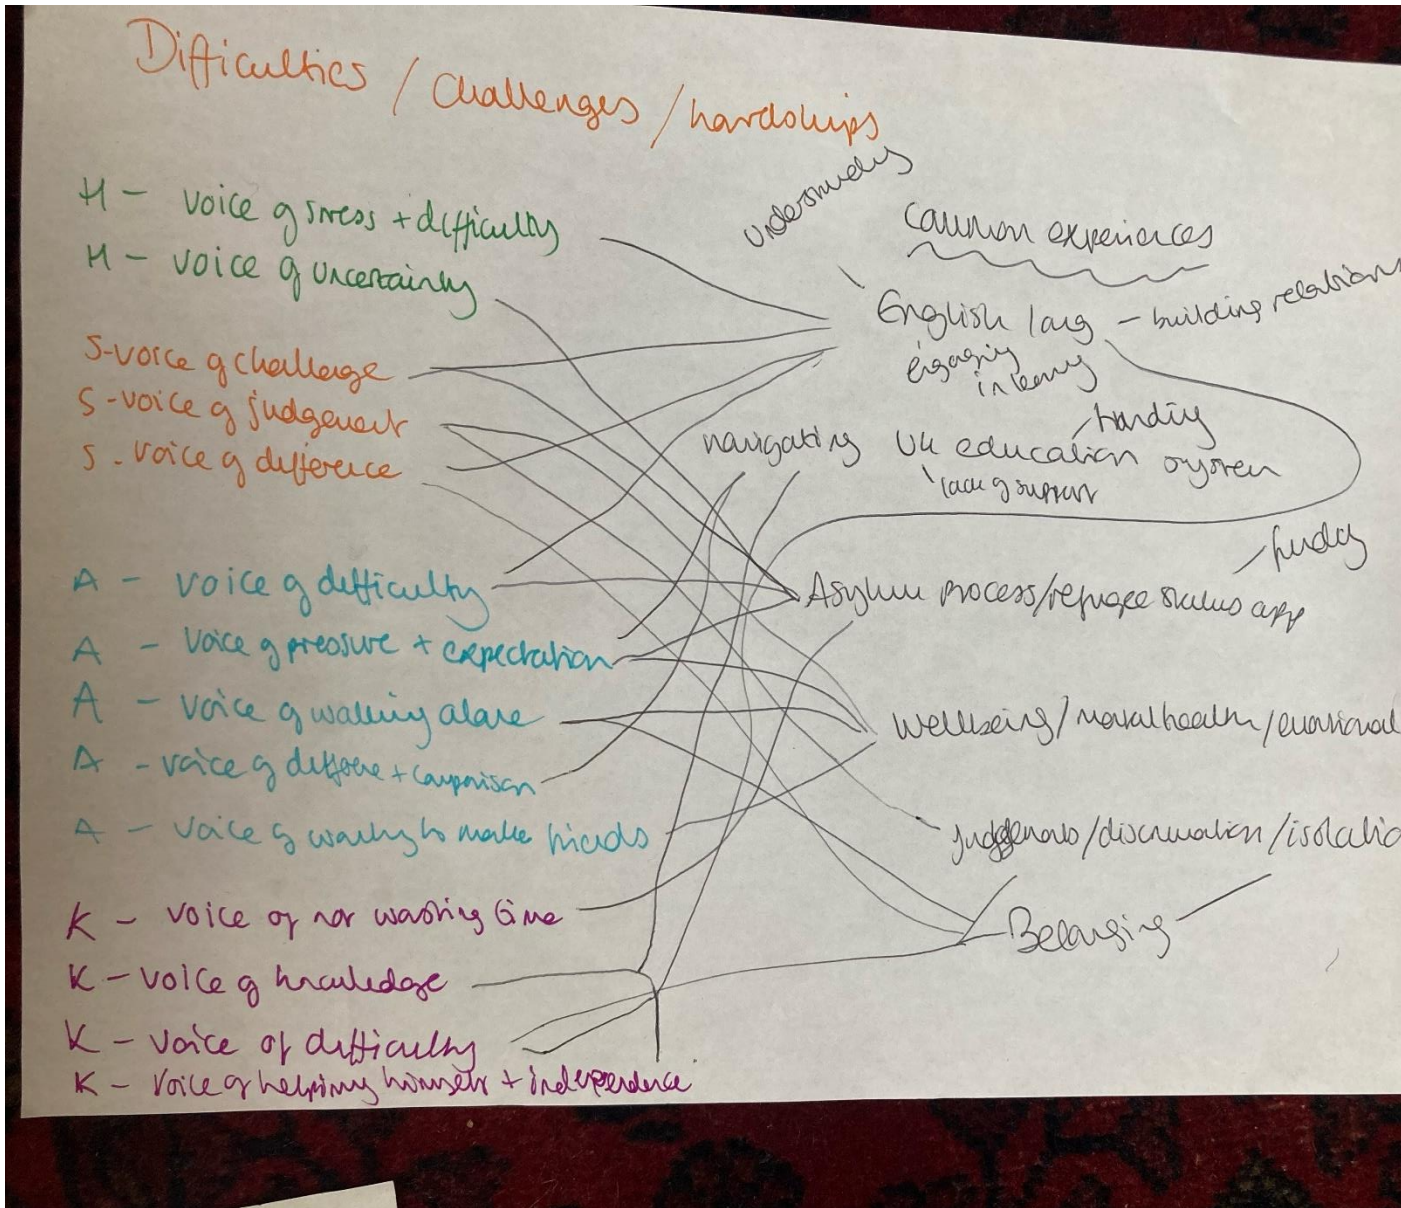 Difficulties / Challenges / hardships
H - voice of stress + difficulty
H - voice of uncertainty
S - voice of challenge
S - voice of judgement
S - voice of difference
A - voice of difficulty
A - voice of pressure + expectation
A - voice of walking alone
A - voice of + comparison
A - voice of to make friends
K - voice of not wasting time
K - voice of knowledge
K - voice of difficulty
K - voice of helping himself + independence
common experiences
English lang - building relations
engaging
in
navigating UK education system
lack of support
Asylum process/refugee status app
Wellbeing / /emotional
/isolatio
Belonging